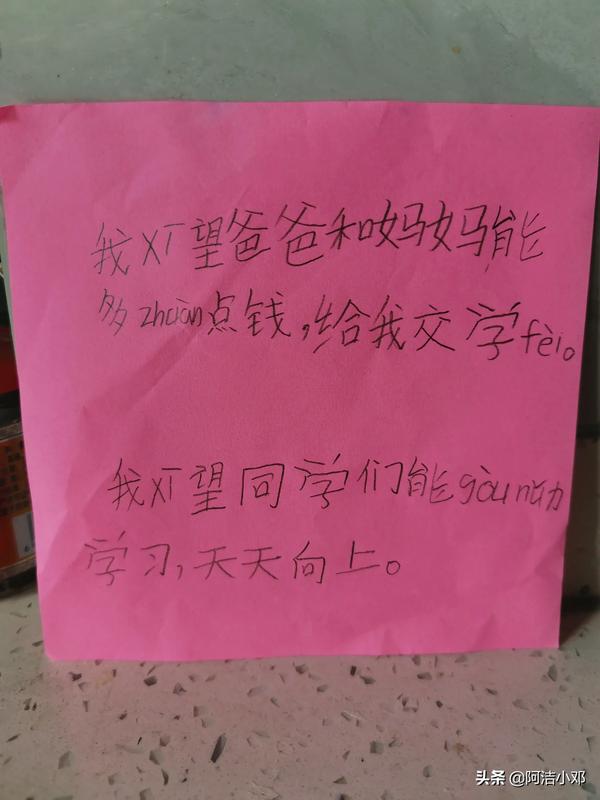 我xī望爸爸和妈妈能
多zhuàn点钱,给我交学fèi。
我xī望同学们能gòu nǔ力
学习,天天向上。
头条 @阿洁小邓